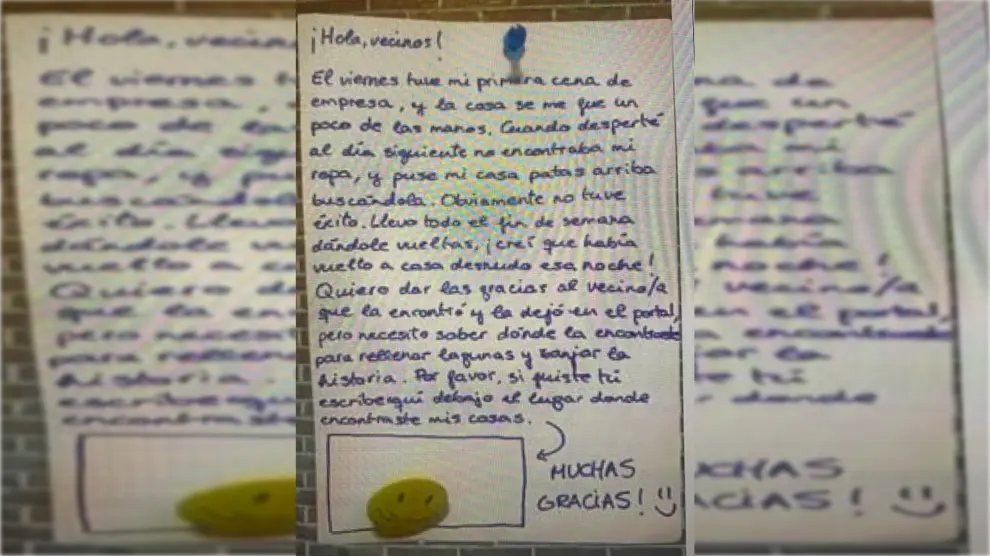 ¡Hola, vecinos!
El viernes tuve mi primera cena de
empresa, y la cosa se me fue un
poco de las manos. Cuando desperté
al día siguiente no encontraba mi
ropa, y puse mi casa patas arriba
buscándola. Obviamente no tuve
éxito. Llevo todo el fin de semana
dándole vueltas, ¡creí que había
vuelto a casa desnudo esa noche!
Quiero dar las gracias al vecino/a
que la encontró y la dejó en el portal,
pero necesito saber dónde la encontraste
para rellenar lagunas y zanjar la
historia. Por favor, si fuiste tú
escribe aquí debajo el lugar donde
encontraste mis cosas.
MUCHAS
GRACIAS!